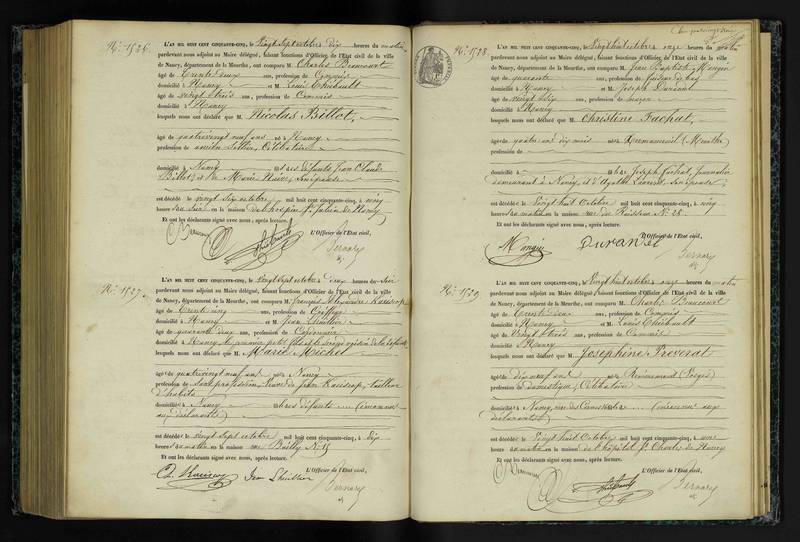 No. 1526.
L'AN MIL HUIT CENT CINQUANTE-CINQ, le Vingt Sept octobre dix heures du matin
pardevant nous adjoint au Maire délégué, faisant fonctions d'Officier de l'Etat civil de la ville
de Nancy, département de la Meurthe, ont comparu M. Charles
âgé de trente deux ans, profession de Commis
domicilié à Nancy et M. Louis Thiébault
âgé de vingt trois ans, profession de Commis
domicilié à Nancy
lesquels nous ont déclaré que M. Nicolas Billot,
âgé de quatrevingt neuf ans né à Nancy
profession de ancien Sellier, Célibataire
domicilié à Nancy fils des défunts Jean Claude
Billot, et de Marie son épouse
est décédé le vingt six octobre mil huit cent cinquante-cinq, à cinq
heures du soir en la maison de l'hospice St. Julien de Nancy
Et ont les déclarants signé avec nous, après lecture.
L'Officier de l'Etat civil,
Bernary
No. 1527.
L'AN MIL HUIT CENT CINQUANTE-CINQ, le Vingt Sept octobre deux heures du Soir
pardevant nous adjoint au Maire délégué, faisant fonctions d'Officier de l'Etat civil de la ville
de Nancy, département de la Meurthe, ont comparu M. François Alexandre
âgé de trente cinq ans, profession de Coiffeur
domicilié à Nancy et M. Jean Lhuillier
âgé de quarante deux ans, profession de
domicilié à Nancy, le premier petit fils et le second voisin de la défunte
lesquels nous ont déclaré que M. Marie Michel
âgé de quatrevingt neuf ans née à Nancy
profession de Sans profession, Veuve de Jean tailleur
d'habits
domicilié à Nancy des défunts .... (inconnus
aux déclarants)
est décédé le vingt Sept octobre mil huit cent cinquante-cinq, à dix
heures du matin en la maison rue Bailly No. 15
Et ont les déclarants signé avec nous, après lecture.
L'Officier de l'Etat civil,
Jean Lhuillier
Bernary
No. 1528.
L'AN MIL HUIT CENT CINQUANTE-CINQ, le Vingt huit octobre onze heures du matin
pardevant nous adjoint au Maire délégué, faisant fonctions d'Officier de l'Etat civil de la ville
de Nancy, département de la Meurthe, ont comparu M. Jean Baptiste Mangin
âgé de quarante ans, profession de faiseur de bas
domicilié à Nancy et M. Joseph Durand
âgé de vingt ans, profession de maçon
domicilié à Nancy
lesquels nous ont déclaré que M. Christine Fachat,
âgé de quatre ans dix mois née à (Meurthe)
profession de
domicilié à fille de Joseph Fachat, Journalier
demeurant à Nancy, et d'Agathe son épouse,
est décédé le Vingt huit Octobre mil huit cent cinquante-cinq, à cinq
heures du matin en la maison rue du Ruisseau No. 28
Et ont les déclarants signé avec nous, après lecture.
L'Officier de l'Etat civil,
Mangin
Durand
Bernary
No. 1529
L'AN MIL HUIT CENT CINQUANTE-CINQ, le Vingt huit octobre onze heures du matin
pardevant nous adjoint au Maire délégué, faisant fonctions d'Officier de l'Etat civil de la ville
de Nancy, département de la Meurthe, ont comparu M. Charles
âgé de trente deux ans, profession de Commis
domicilié à Nancy et M. Louis Thiébault
âgé de Vingt trois ans, profession de Commis
domicilié à Nancy
lesquels nous ont déclaré que M. Josephine Preverat
âgé de Dix neuf ans née à Remiremont (Vosges)
profession de domestique, Célibataire
domicilié à Nancy, rue des Carmes fille de .... (inconnus aux
déclarants)
est décédé le Vingt huit Octobre mil huit cent cinquante-cinq, à une
heure du matin en la maison de l'hôpital St. Charles de Nancy
Et ont les déclarants signé avec nous, après lecture.
L'Officier de l'Etat civil,
Bernary